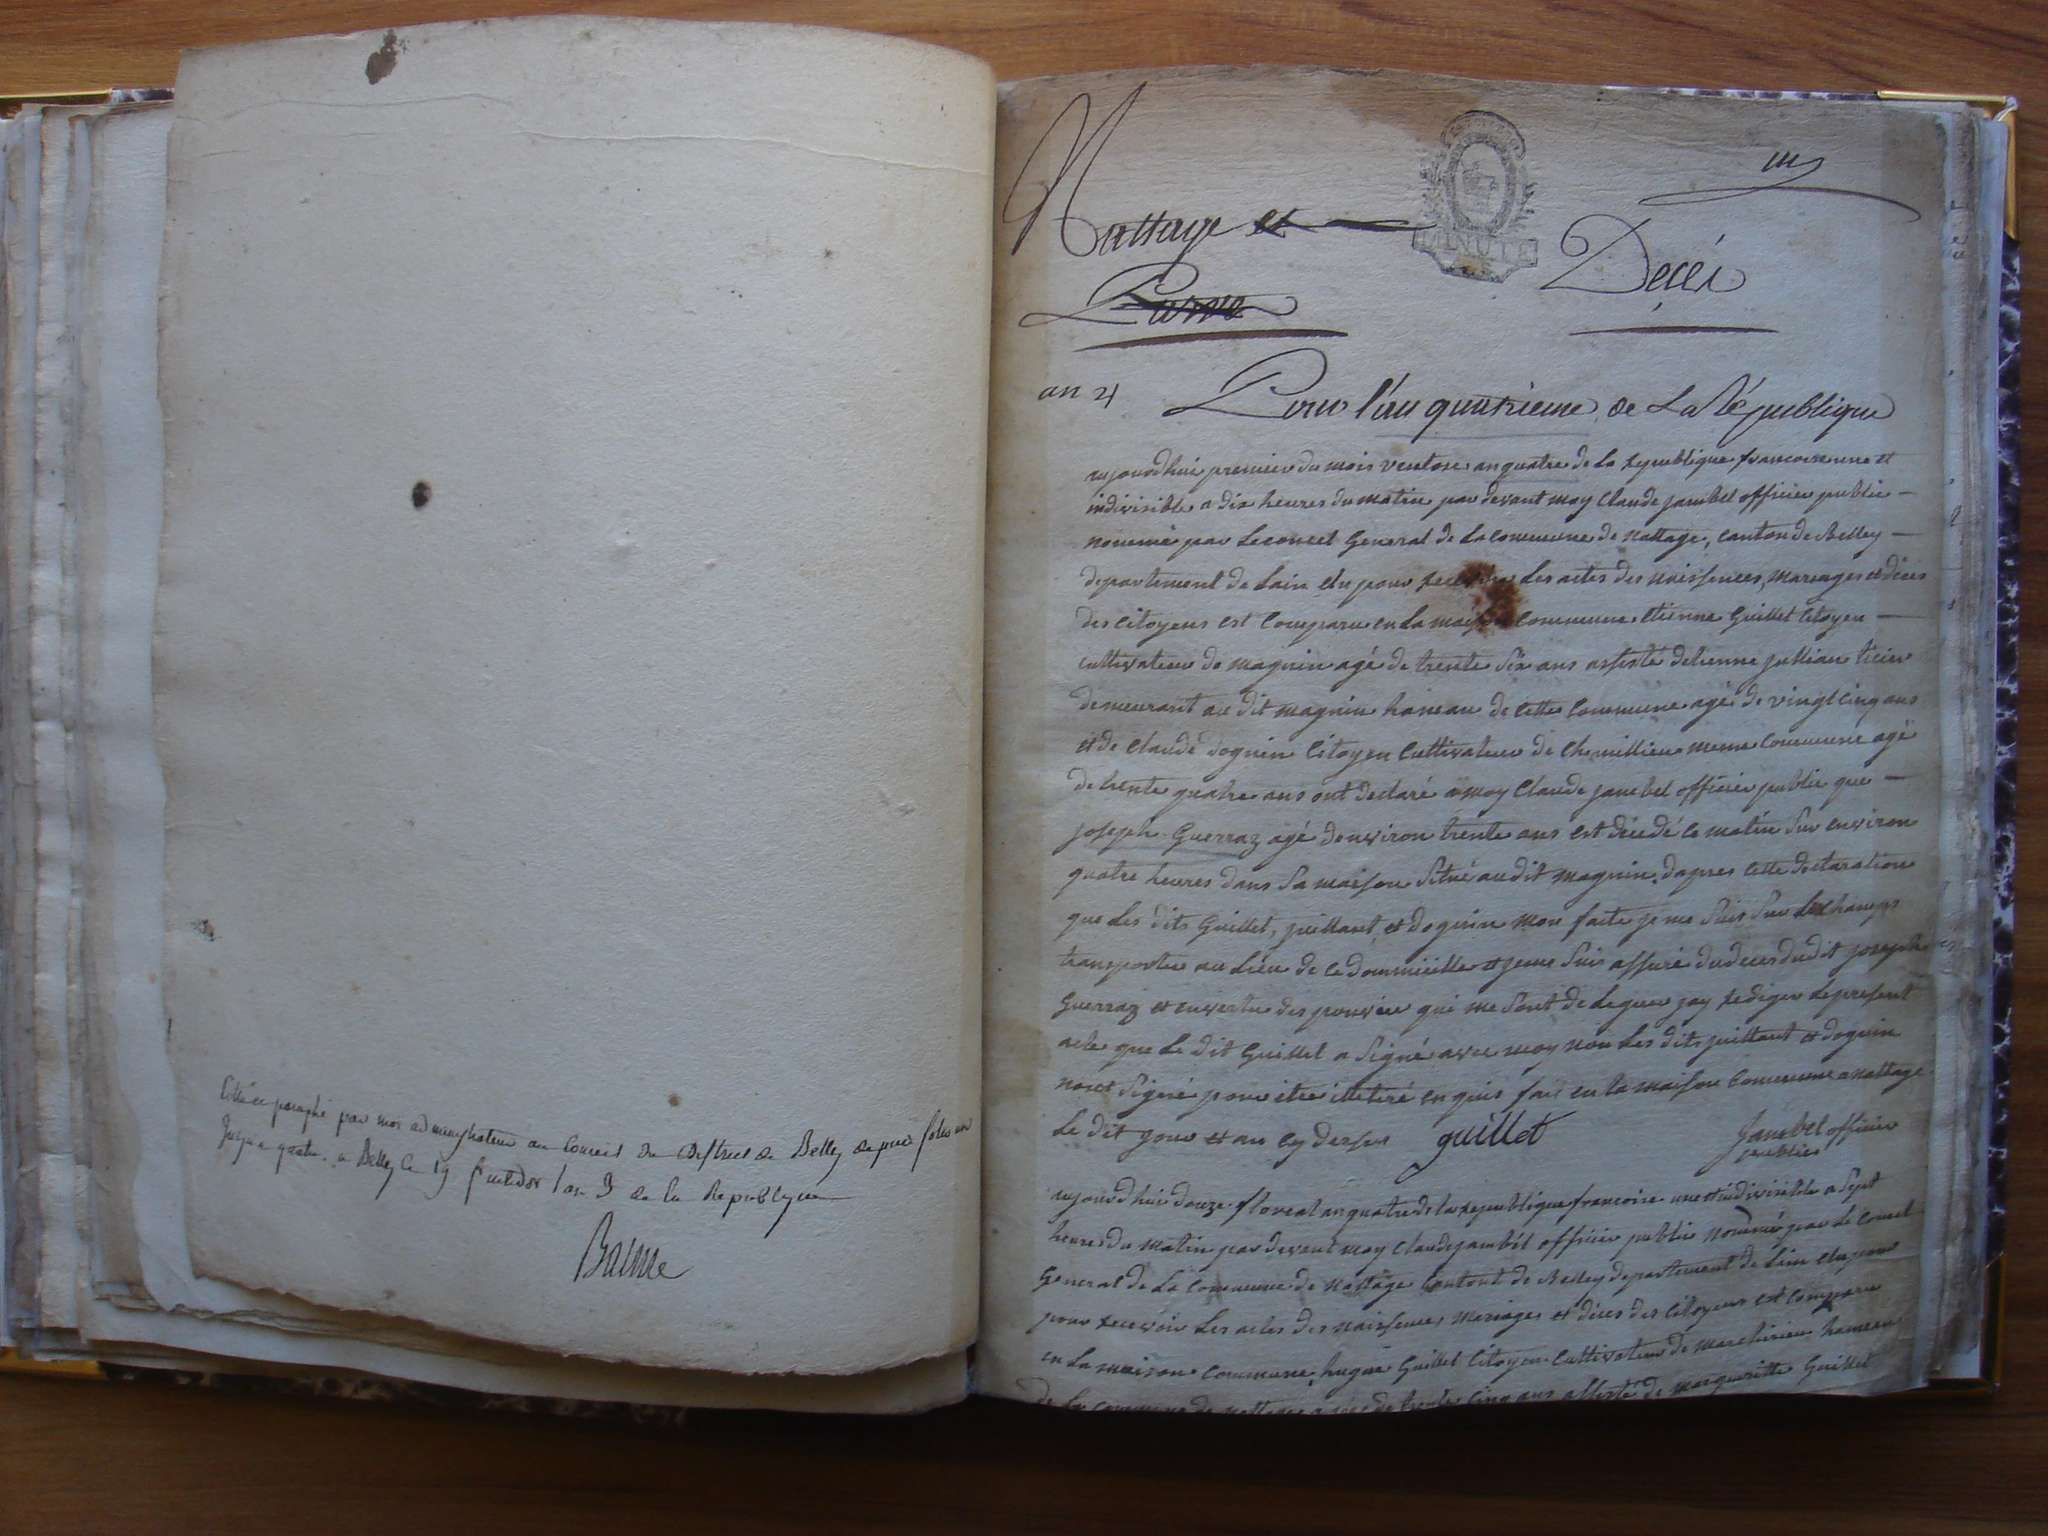 Cotté et paraphé par moi administrateur au Conseil du District de Belley depuis folio un
jusqu'a quatre. a Belley le 19 fructidor l'an 3 de la République
Brune
Nattage et
Parve
MINUTE
Decés
an 4
Pour l'an quatrieme de La République
aujourdhui premier du mois ventose an quatre de La republique francoise une et
indivisible a dix heures du matin par devant moy Claude jambel officier public
nommé par Le conset General de La commune de Nattage, canton de Belley
departement de Lain elu pour recevoir Les actes des naissences, mariages et déces
des Citoyens est Comparu en La maison commune. Etienne Guillet Citoyen
cultivateur de magnin agé de trente six ans assisté detienne jullian ticier
demeurant au dit magnin hameau de cette Commune agé de vingt cinq ans
et de Claude doguin Citoyen Cultivateur de Chemillieu meme Commune agé
de trente quatre ans ont declaré a moy Claude jambel officier public que
joseph Guerraz agé denviron trente ans est décédé ce matin sur environ
quatre heures dans sa maison situé au dit magnin. dapres cette declaration
que Les dits Guillet, juillant, et doguin mon faite je me suis sur Lechamps
transporter au Lieu de ce dommicille et je me suis assuré du deces du dit joseph
Guerraz et en vertu des pouvoir qui me sont deleguer jay rediger Le present
acte que Le dit Guillet a signé avec moy non Les dits juillant et doguin
nont signé pour etre illetiré enquis fait en la maison Commune a nattage
Le dit jour et an cy dessus guillet
Jambel officier
public
aujourdhui douze floreal an quatre de la republique francoise une et indivisible a sept
heures du matin par devant moy Claude jambel officier public nommé par Le conset
General de La Commune de Nattage Cantont de Belley departement de Lain elu pour
pour recevoir Les actes des naissences, mariages et déces des Citoyens est comparu
en La maison Commune, hugue Guillet Citoyen Cultivateur de marchirieu hameau
de La Commune de nattage agé de trente cinq ans assisté de margueritte Guillet